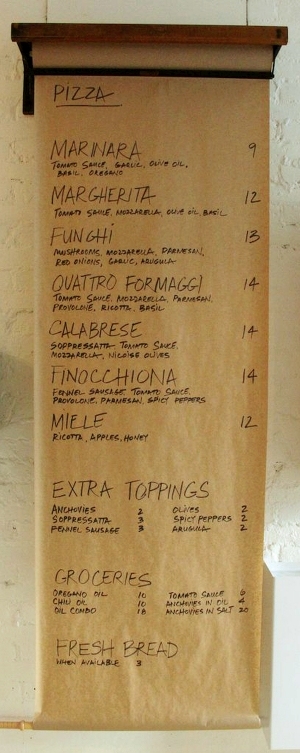 PIZZA
MARINARA 9
TOMATO SAUCE, GARLIC, OLIVE OIL,
BASIL, OREGANO
MARGHERITA 12
TOMATO SAUCE, MOZZARELLA, OLIVE OIL, BASIL
FUNGHI 13
MUSHROOMS, MOZZARELLA, PARMESAN,
RED ONIONS, GARLIC, ARUGULA
QUATTRO FORMAGGI 14
TOMATO SAUCE, MOZZARELLA, PARMESAN,
PROVOLONE, RICOTTA, BASIL
CALABRESE 14
SOPPRESSATTA TOMATO SAUCE,
MOZZARELLA, NICOISE OLIVES
FINOCCHIONA 14
FENNEL SAUSAGE, TOMATO SAUCE,
PROVOLONE, PARMESAN, SPICY PEPPERS
MIELE 12
RICOTTA, APPLES, HONEY
EXTRA TOPPINGS
ANCHOVIES 2 OLIVES 2
SOPPRESSATTA 3 SPICY PEPPERS 2
FENNEL SAUSAGE 3 ARUGULA 2
GROCERIES
OREGANO OIL 10 TOMATO SAUCE 6
CHILI OIL 10 ANCHOVIES IN OIL 4
OIL COMBO 18 ANCHOVIES IN SALT 20
FRESH BREAD
WHEN AVAILABLE 3